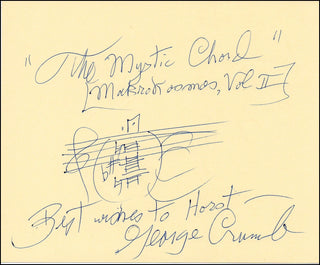 "The Mystic Chord"
[Makrokosmos, Vol II]
Best wishes to Horst
George Crumb